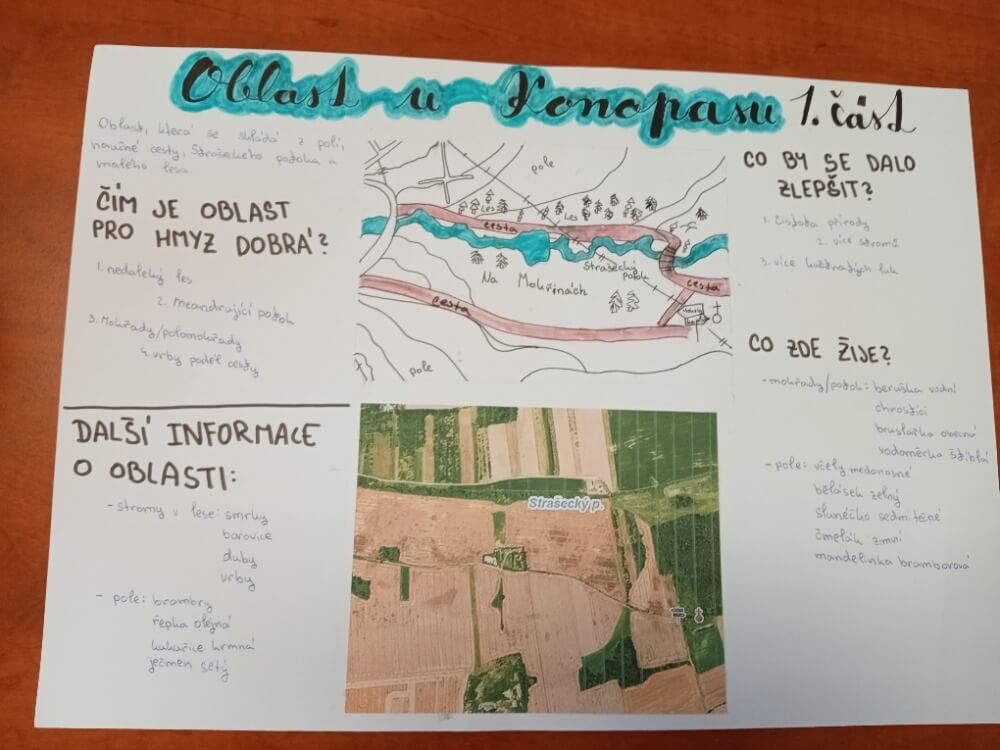 Oblast u Konopasu 1. část
Oblast, která se skládá z polí,
naučné cesty, Strašeckého potoka a
malého lesa.
ČÍM JE OBLAST
PRO HMYZ DOBRÁ?
1. nedaleký les
2. Meandrující potok
3. Mokřady/polomokřady
4. vrby podél cesty
DALŠÍ INFORMACE
O OBLASTI:
- stromy v lese: smrky
borovice
duby
vrby
- pole: brambory
řepka olejná
kukuřice krmná
ječmen setý
pole
les
les
cesta
Strašecký
potok
Na Mokřinách
cesta
cesta
pole
Strašecký p.
CO BY SE DALO
ZLEPŠIT?
1. čistota přírody
2. více stromů
3. více květnatých luk
CO ZDE ŽIJE?
- mokřady/potok: beruška vodní
chrostíci
bruslařka obecná
vodoměrka štíhlá
- pole: včely medonosné
bělásek zelný
slunéčko sedmitečné
čmelák zimní
mandelinka bramborová